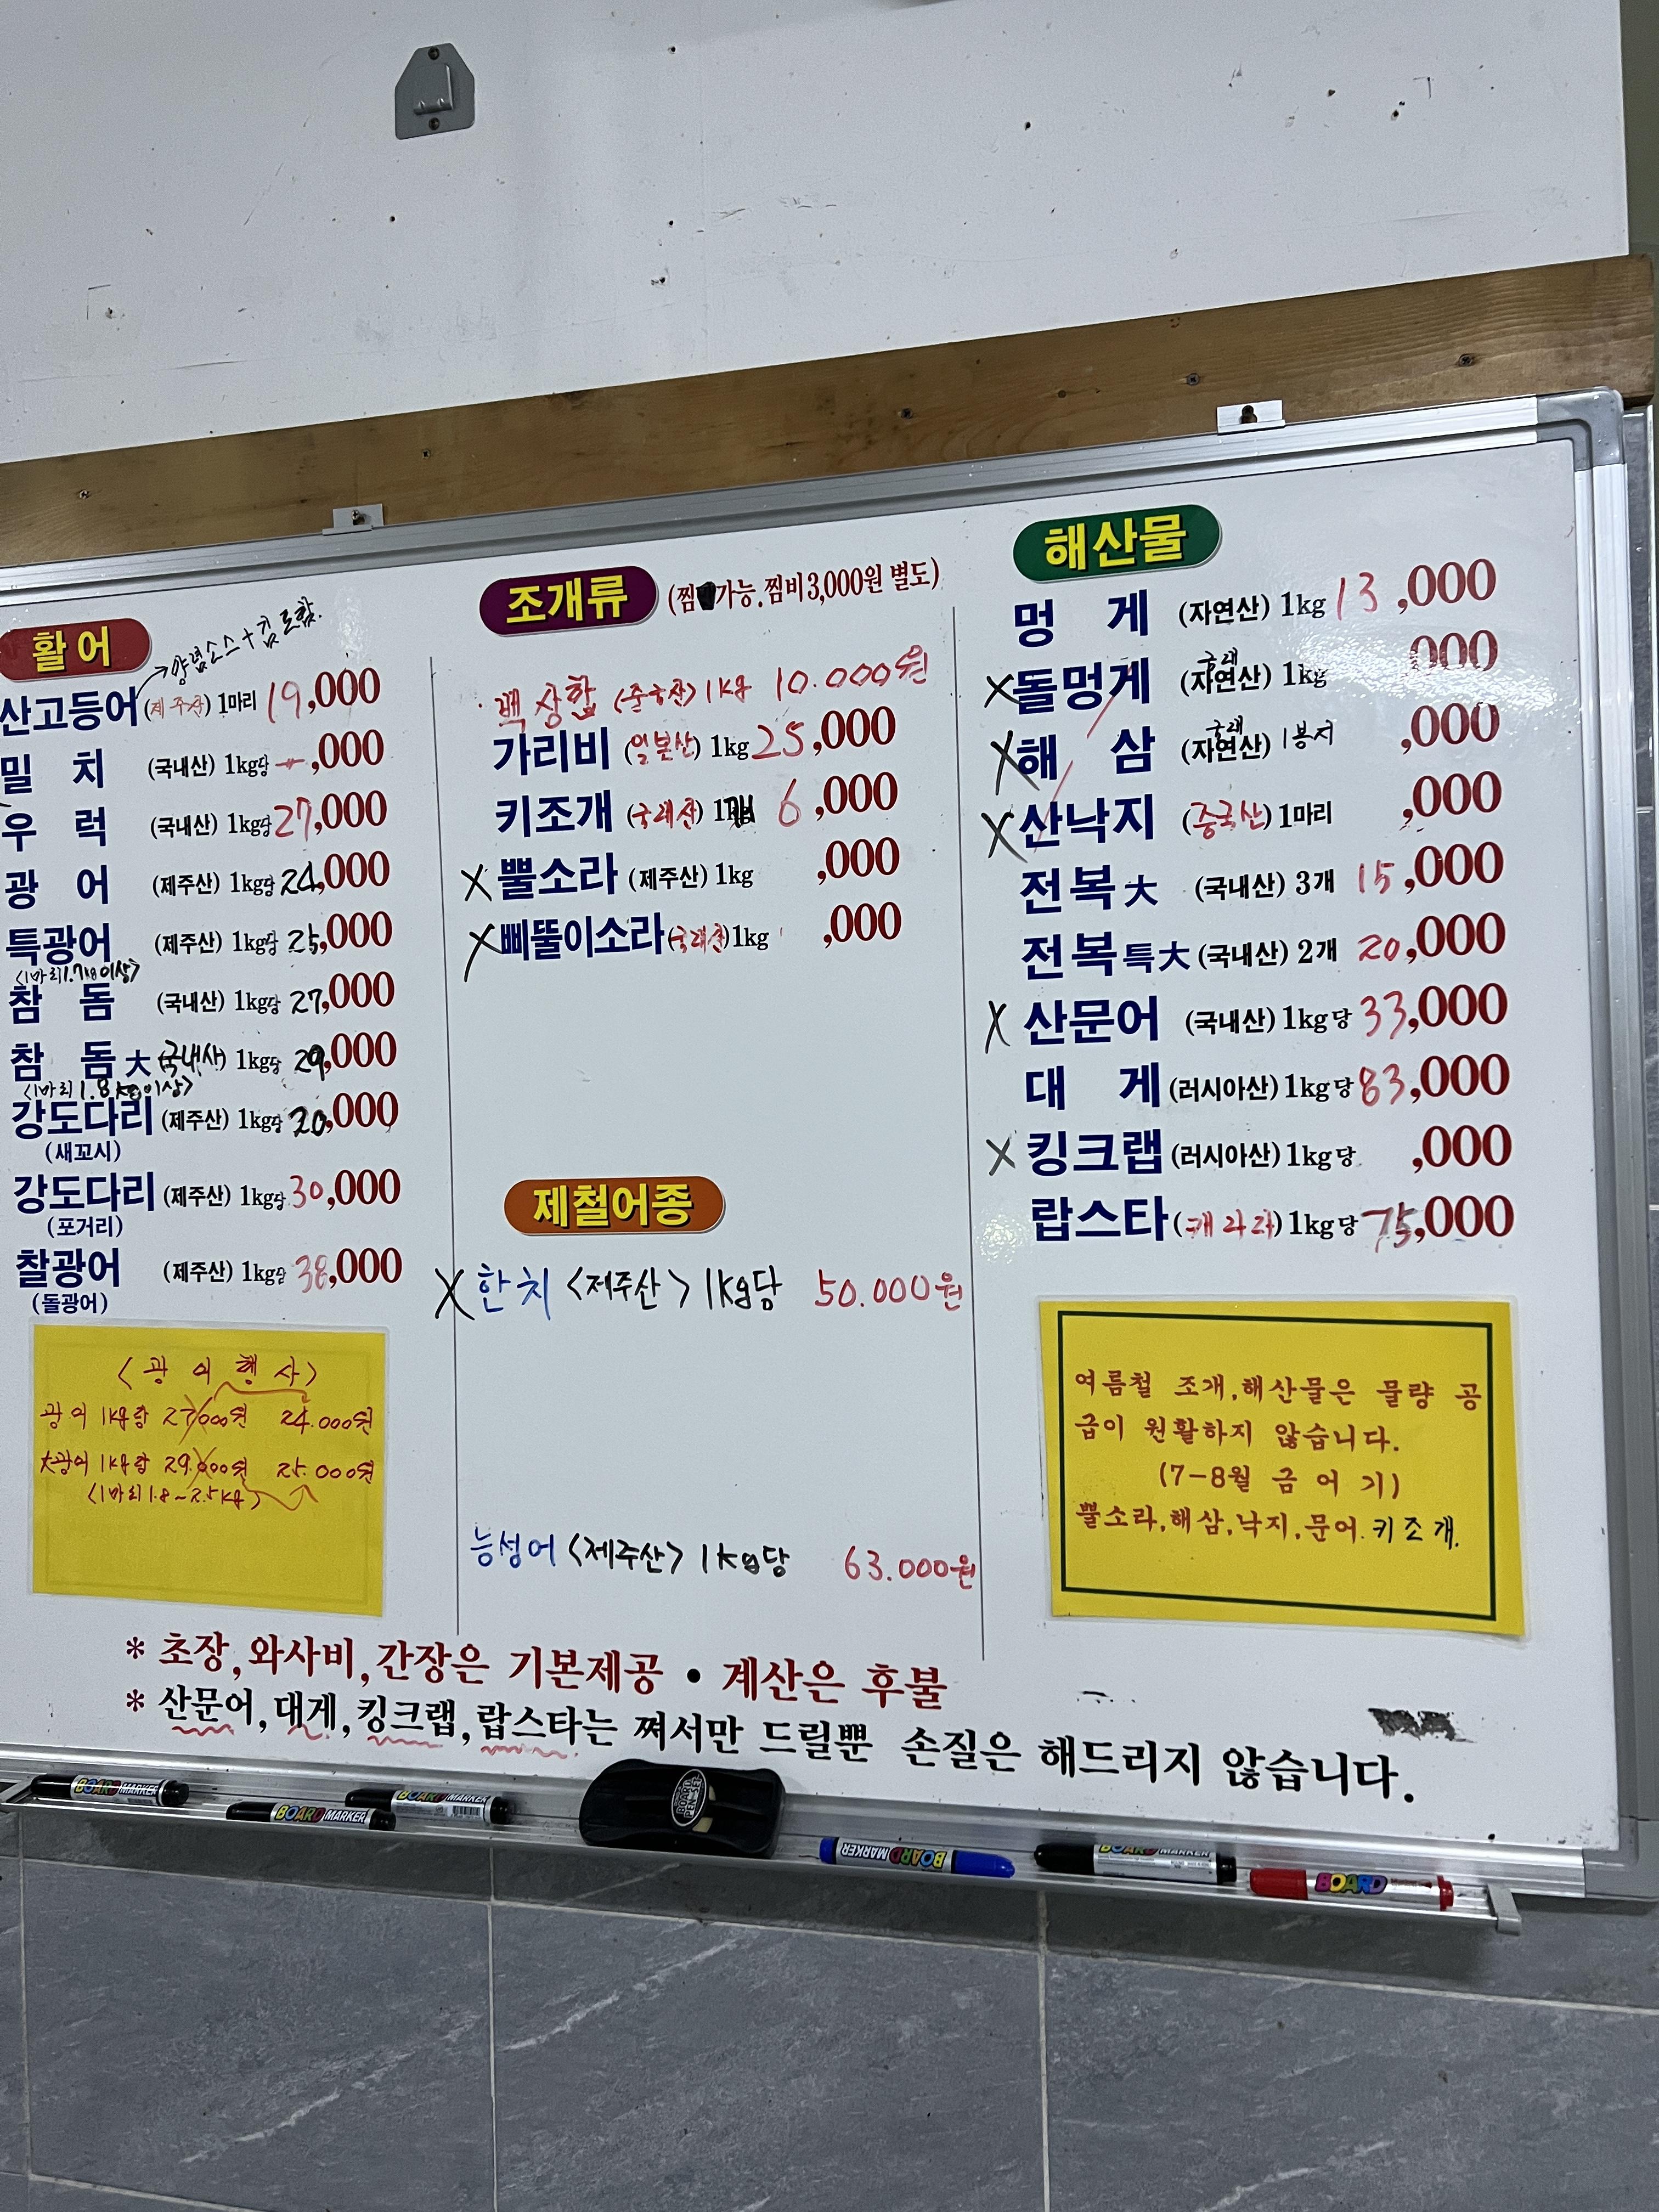 활어
→양념소스+김포함.
산고등어 (제주산) 1마리 19,000
밀 치 (국내산) 1kg당 ,000
우 럭 (국내산) 1kg당 27,000
광 어 (제주산) 1kg당 24,000
특광어 (제주산) 1kg당 25,000
<1마리1.7kg이상>
참 돔 (국내산) 1kg당 27,000
참 돔大 (국내산) 1kg당 29,000
<1마리1.8kg이상>
강도다리 (제주산) 1kg당 20,000
(새꼬시)
강도다리 (제주산) 1kg당 30,000
(포거리)
찰광어 (제주산) 1kg당 38,000
(돌광어)
<광어행사>
광어 1kg당 27,000원 24.000원
大광어 1kg당 29.000원 25.000원
<1마리1.8~2.5kg>
조개류 (찜 가능.찜비3,000원 별도)
백상합 (중국산) 1kg 10.000원
가리비 (일본산) 1kg 25,000
키조개 (국내산) 1개 6,000
X 뿔소라 (제주산) 1kg ,000
X 삐뚤이소라 (국내산) 1kg ,000
제철어종
X 한치 <제주산> 1kg당 50.000원
능성어 <제주산> 1kg당 63.000원
해산물
멍 게 (자연산) 1kg 13,000
X 돌멍게 (자연산) 1kg ,000
X 해 삼 (자연산) 1봉지 ,000
X 산낙지 (중국산) 1마리 ,000
전복大 (국내산) 3개 15,000
전복特大 (국내산) 2개 20,000
X 산문어 (국내산) 1kg당 33,000
대 게 (러시아산) 1kg당 83,000
X 킹크랩 (러시아산) 1kg당 ,000
랍스타 (캐나다) 1kg당 75,000
여름철 조개,해산물은 물량 공
급이 원활하지 않습니다.
(7-8월 금어기)
뿔소라,해삼,낙지,문어.키조개.
* 초장,와사비,간장은 기본제공 • 계산은 후불
* 산문어,대게,킹크랩,랍스타는 쪄서만 드릴뿐 손질은 해드리지 않습니다.
BOARD MARKER
BOARD MARKER
BOARD MARKER
BOARD PEN-SET
BOARD MARKER
BOARD MARKER
BOARD